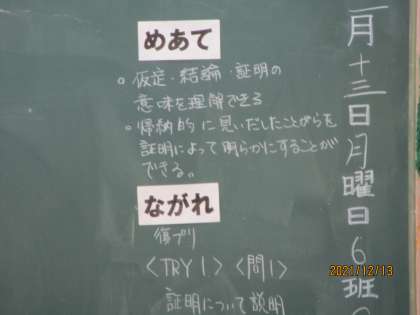 めあて
○仮定・結論・証明の
意味を理解できる
・帰納的に見いだしたことがらを
証明によって明らかにすることが
できる。
ながれ
復プリ
〈TRY1〉〈問1〉
証明について説明
月十三日月曜日6班
2021/12/13